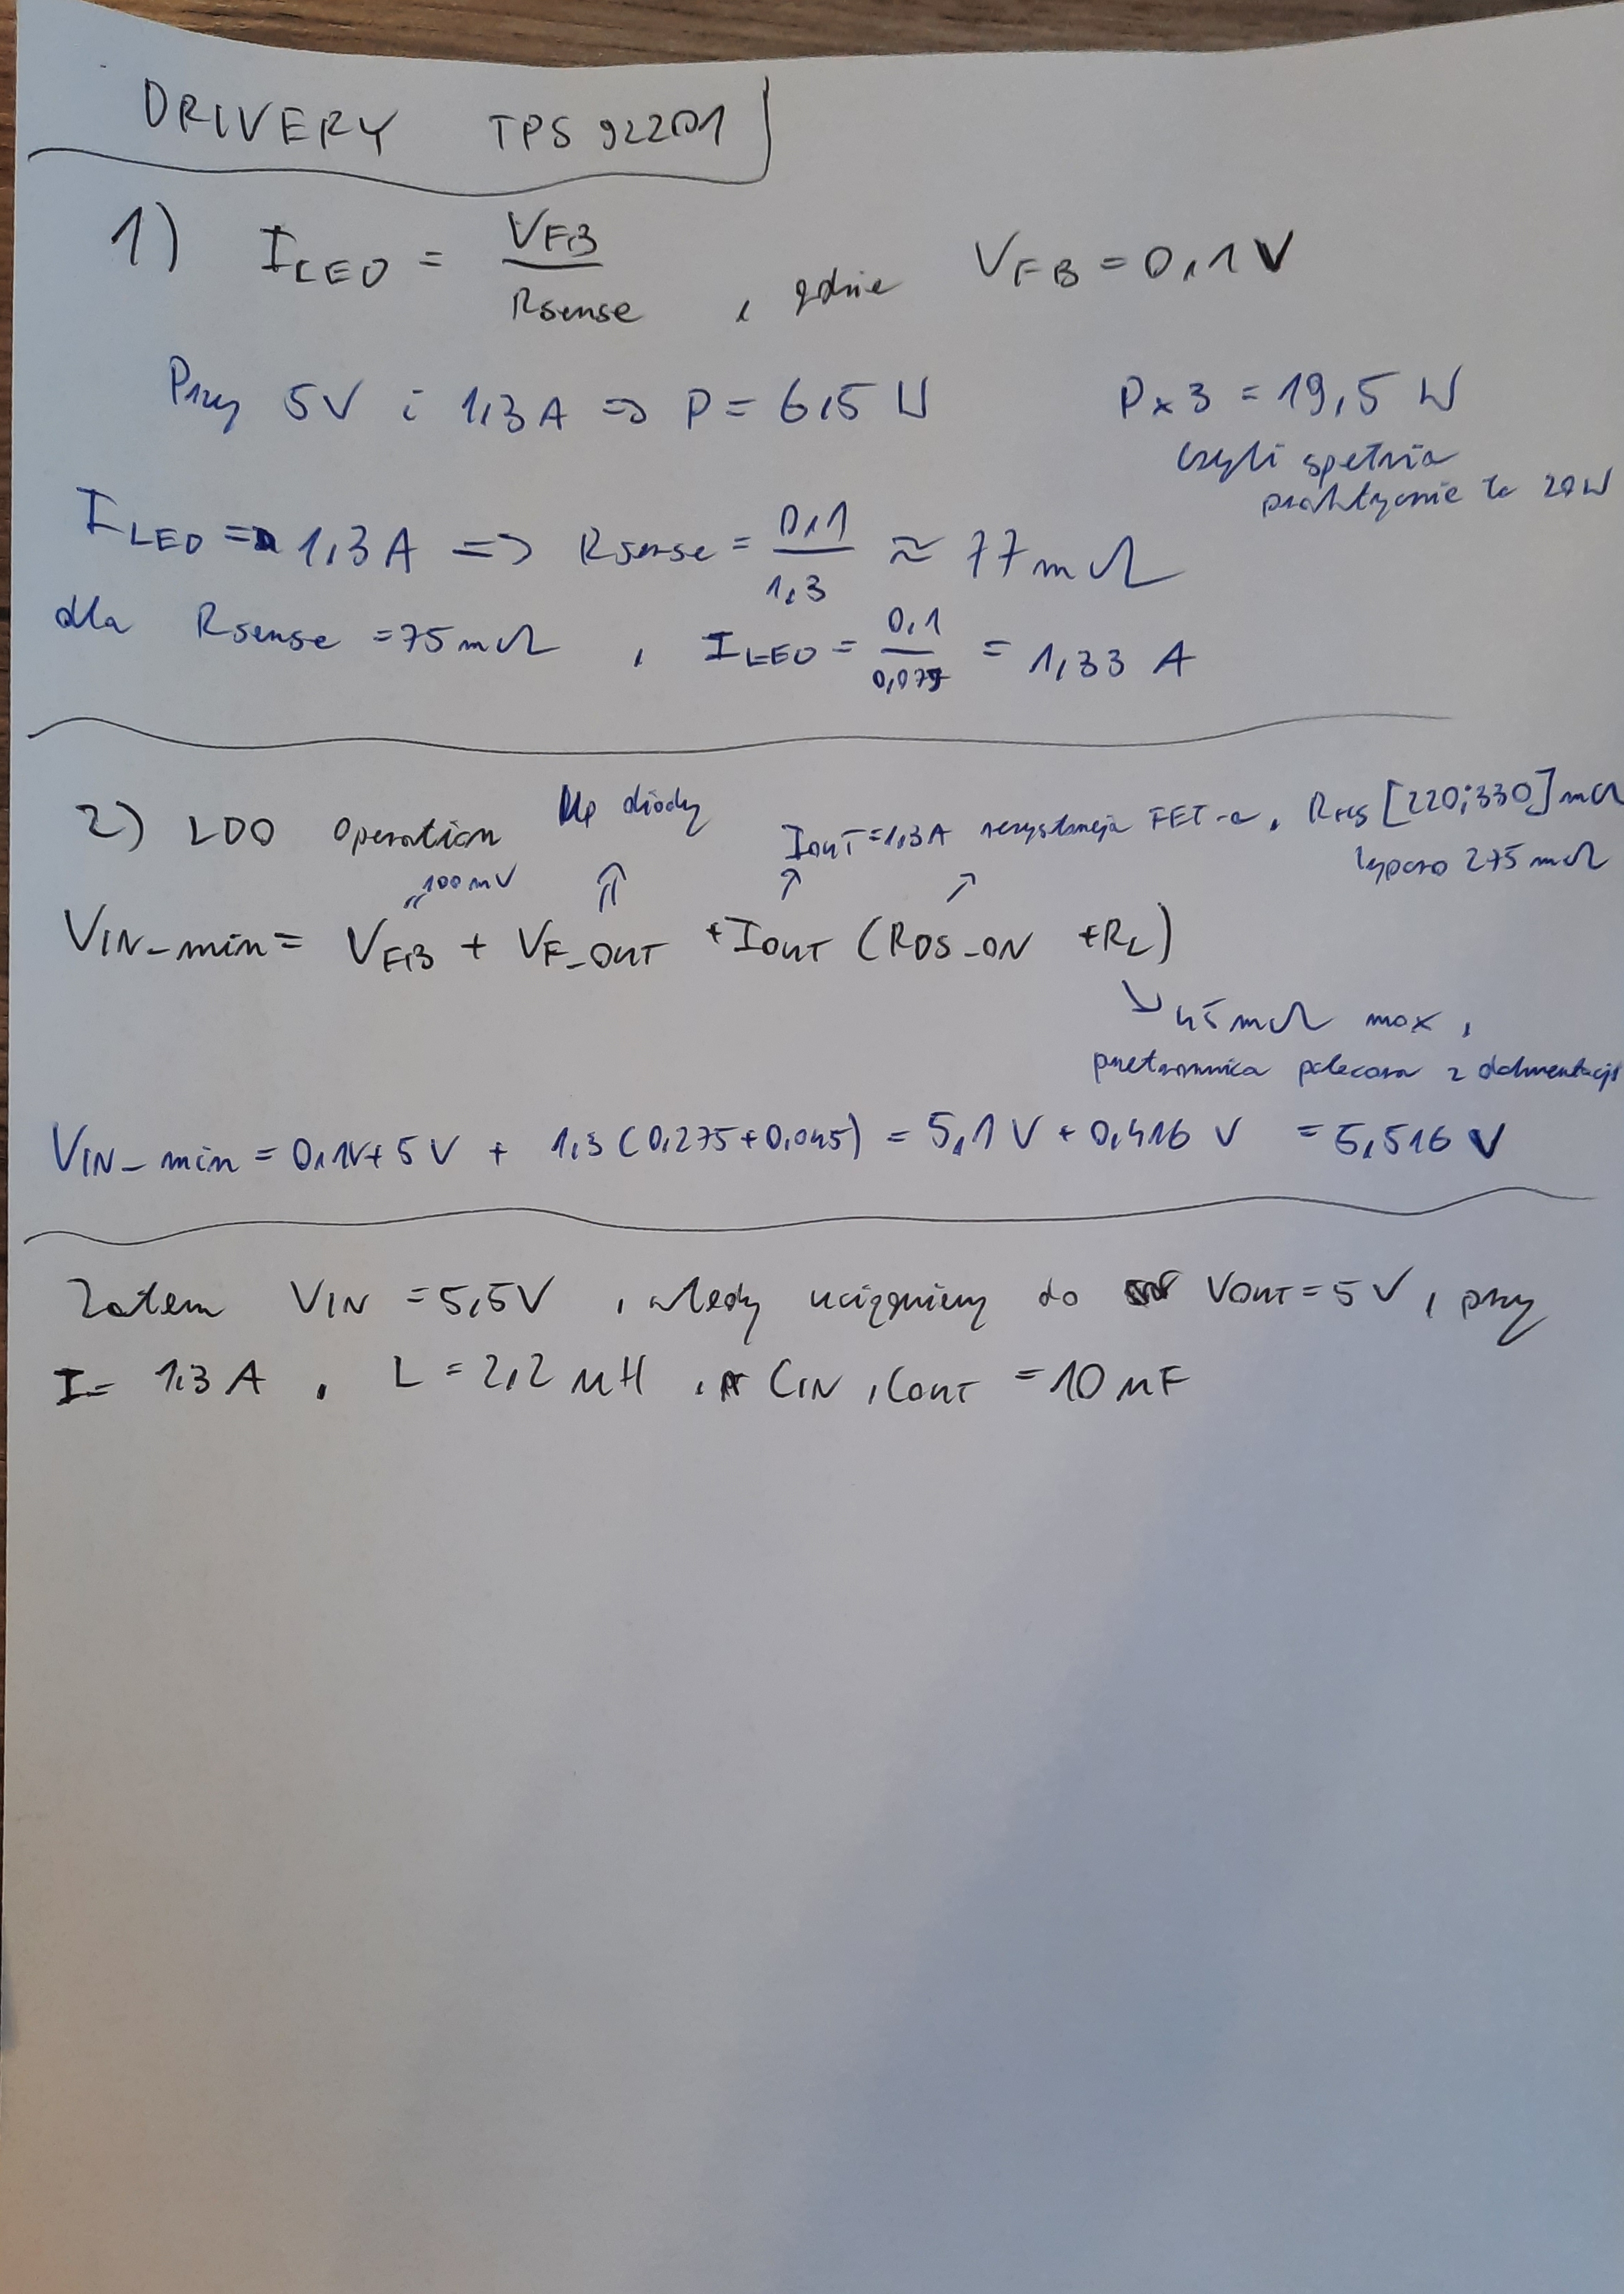 DRIVERY TPS 92201
1) ILED = VFB / Rsense , gdzie VFB = 0,1V
Przy 5V i 1,3A => P = 6,5 W P x 3 = 19,5 W
czyli spełnia
praktycznie te 20W
ILED = 1,3A => Rsense = 0,1 / 1,3 ≈ 77mΩ
dla Rsense = 75mΩ , ILED = 0,1 / 0,075 = 1,33 A
2) LDO operation diody IOUT = 1,3A rezystancja FET-a, RHS [220;330]mΩ
typowo 275mΩ
100mV
VIN_min = VFB + VF_OUT + IOUT (RDS_ON + RL)
45mΩ max,
polecana z dokumentacji
VIN_min = 0,1V + 5V + 1,3 (0,275+0,045) = 5,1V + 0,416 V = 5,516 V
Zatem VIN = 5,5V , wtedy uciągniemy do VOUT = 5V , przy
I = 1,3A , L = 2,2 uH , CIN , COUT = 10 uF